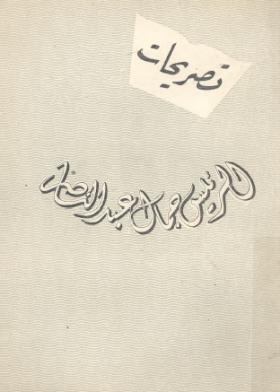 تصريحات
الرئيس جمال عبد الناصر